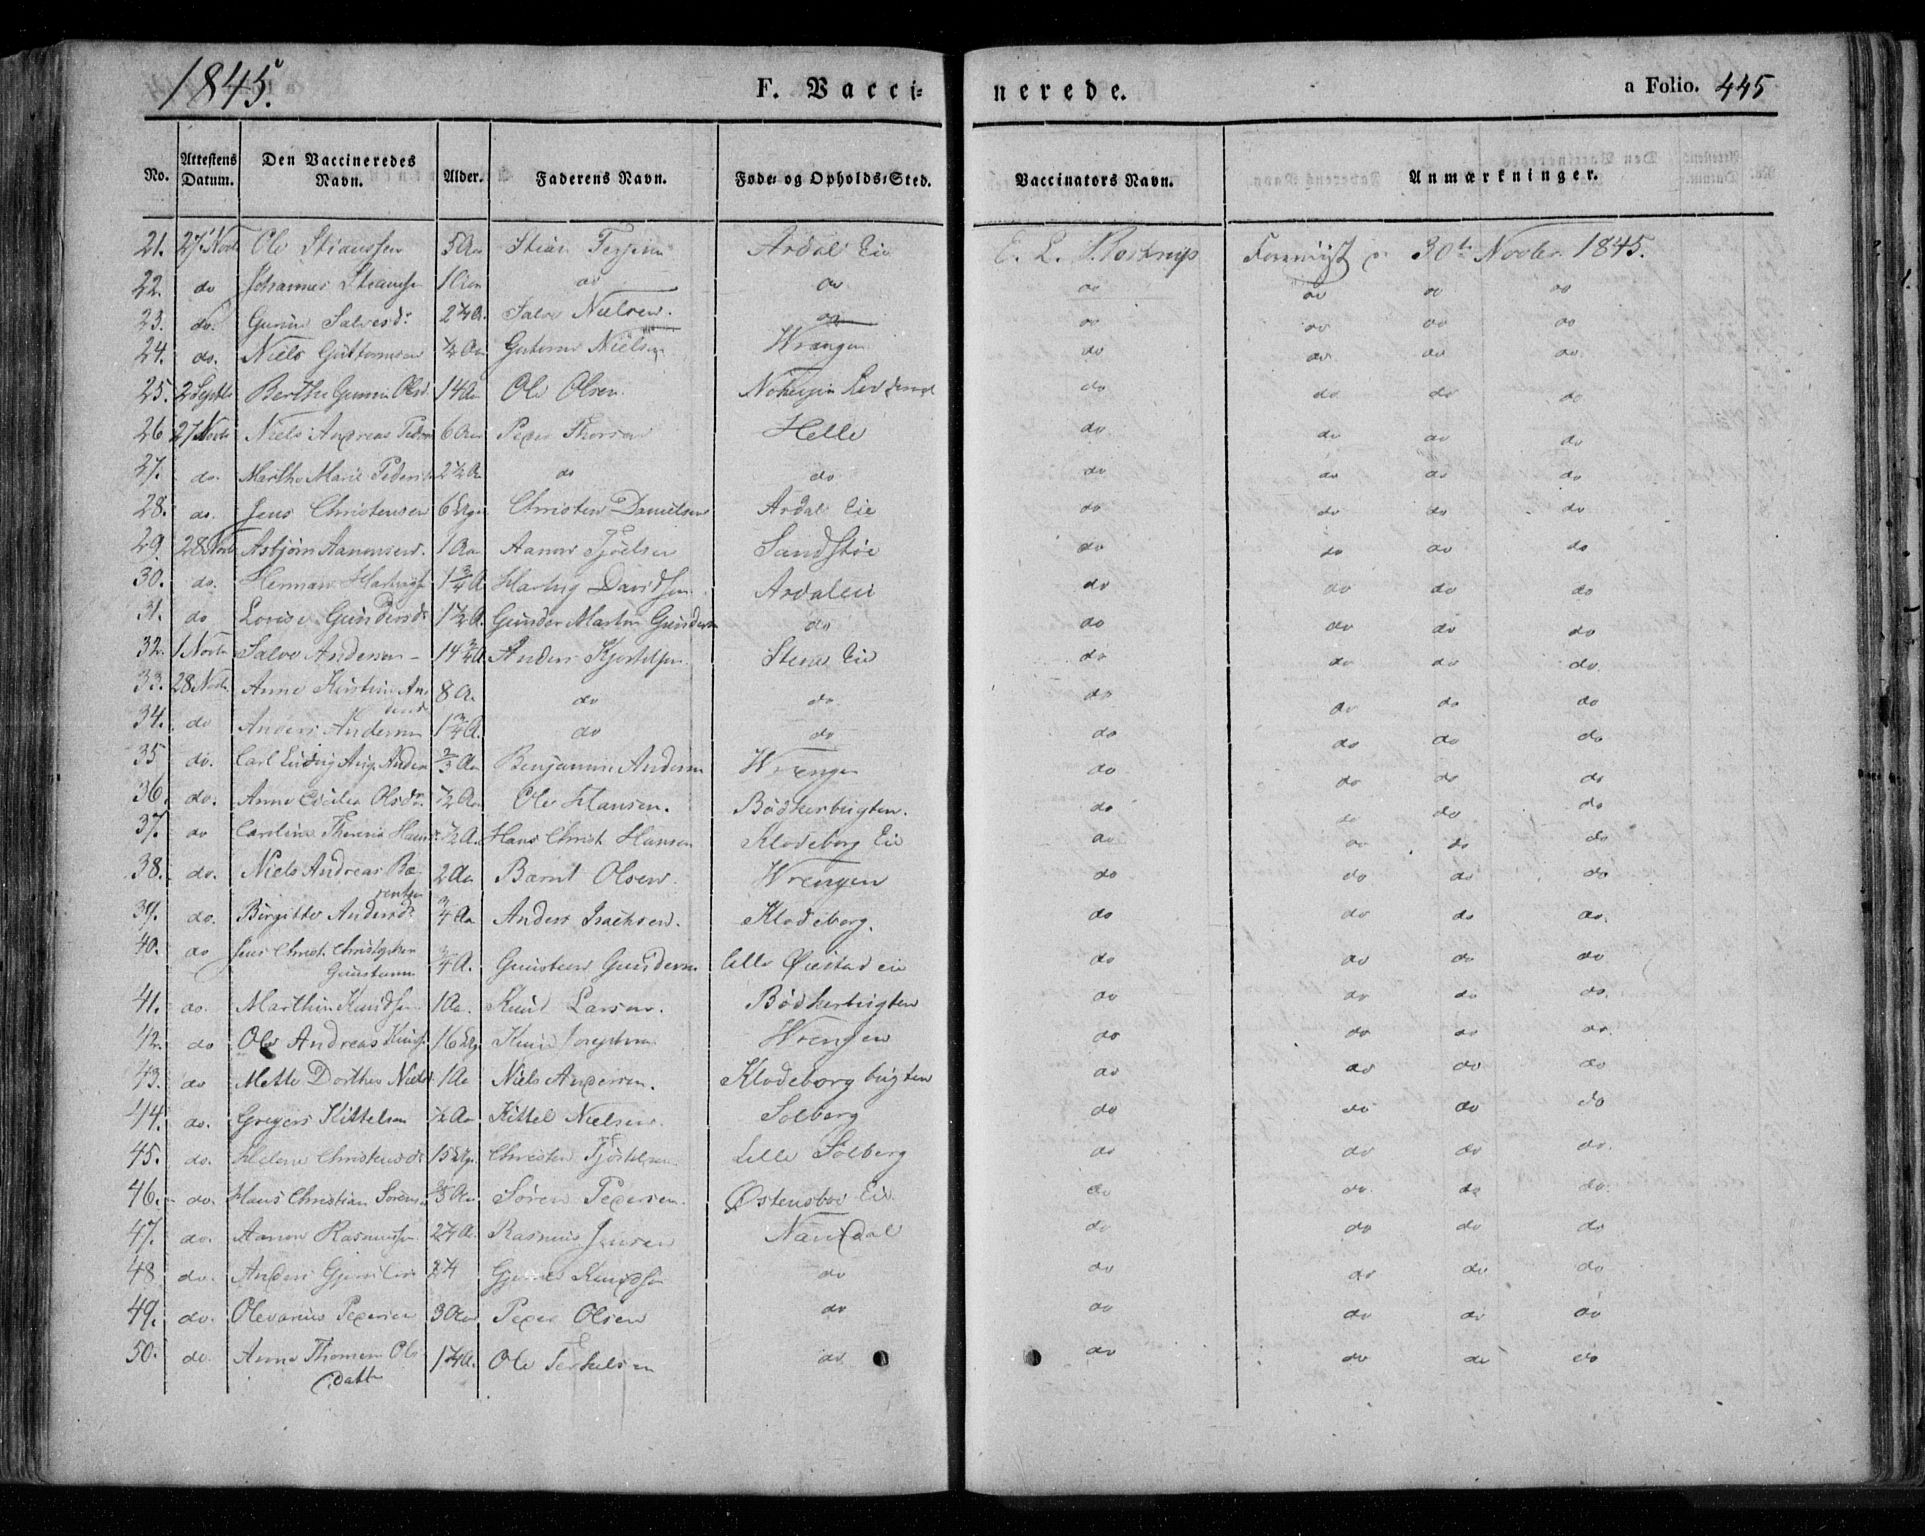 1845.
F. Vacci- nerede.
a Folio. 445
No. Attestens Datum. Den Vaccineredes Navn. Alder. Faderens Navn. Føde- og Opholds-Sted. Vaccinators Navn. Anmærkninger.
21. 27 Novb Ole 5 Aar Stian Ardal Eie E. L. 30t Novbr. 1845.
22. do Johannes do do do do do do
23. do. Salvesdr 2¼ A. Salve Nielsen. do do do do do
24. do. Niels Guttormsen ½ Aar Guttorm Nielsen Wrængen do do do do
25. 2 Septb Berthe Gunni Olsd 14 Aar Ole Olsen do do do do
26 27 Novb Niels Andreas Peders 6 Aar Peder Thorsen Helle do do do do
27. do. Marthe Marie Peders 2½ Aar do do do do do do
28. do. Jens Christensen 6 Christen Danielsen Ardal Eie do do do do
29. 28 Novb Asbjørn Aanonsen. 1 Aar Aanon Sandstøe do do do do
30. do. Herman Hartvigs 1¾ A Hartvig Davidsen Ardal eie do do do do
31. do Lovise Gundersd 1½ A. Gunder Martin Gunders do do do do do
32. 1 Novb Salve Andersen 14¾ A Anders Kjostelsen Eie do do do do
33. 28 Novb Anne Kirstine An- 8 A. do do do do do do
dersd
34. do Anders Andersen 1¾ A. do do do do do do
35 do. Carl Ludvig Aug. Anders ⅔ Aar Benjamin Andersen Wrengen do do do do
36. do. Anne Cecilia Olsdr. ½ Aar Ole Hansen. Bödkerbugten. do do do do
37. do Caroline Theresia Hansd ½ A. Hans Christ. Hansen Klodeborg Eie do do do do
38. do. Niels Andreas Bæ- 2 Aar Bærnt Olsen Wrengen do do do do
rentsen
39. do. Birgitte Andersd. ¾ Aar Anders Isachsen. Klodeborg. do do do do.
40. do Jens Christ. Christopher ¾ A. Gunsteen Gundersen Lille Øiestad eie do do do do
Gunstensen
41. do. Marthin Knudsen 1 Aa. Knud Larsen. Bödkerbugten do do do do.
42. do Ole Andreas Knuds 16 Knud Josephsen Wrengen do do do do.
43. do Mette Dorthea Niels 1 Aa Niels Andersen. Klodeborg bugten do do do do
44. do. Gregers Kittelsen ½ Aar Kittel Nielsen Solberg do do do do
45. do. Helene Christensd 15 Christen Lille Solberg do do do do.
46. do. Hans Christian Sörens Aar Sören Pedersen Østensboe Eie do do. do do.
47. do. Aanon Rasmussen 2¼ A. Rasmus Jensen do do do do
48 do. Anders do do do do do
49. do. Olevarius Pedersen 3 Aar Peder Olsen do do do do do
50. do. Anne Thomine Ols 1¼ A. Ole Terkelsen do do do do do
datter